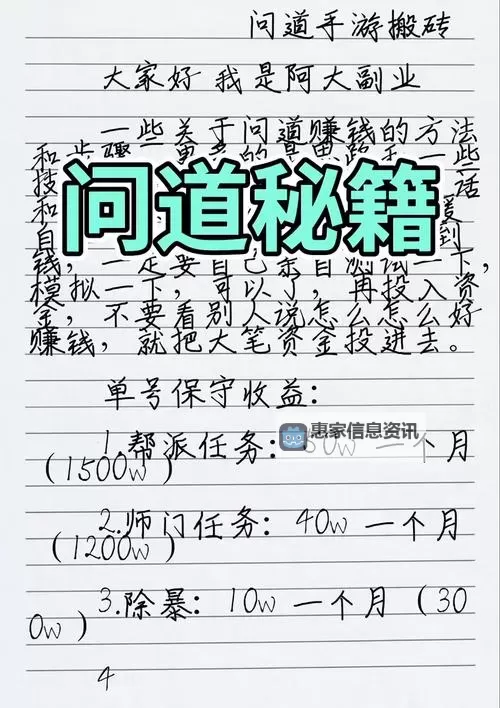 问道手游搬砖
大家好 我是阿大副业
一些关于问道赚钱的方法
和步骤 一些
技 话
和
自 到
钱，一定要自己亲自测试一下，
模拟一下，可以了，再投入资
金，不要看别人说怎么怎么好
赚钱，就把大笔资金投进去。
问道秘籍
单号保守收益：
1.帮派任务： 0w 一个月
（1500w）
惠家信息资讯
2.师门任务：40w 一个月
（1200w）
3.除暴：10w 一个月（30
0w）
4